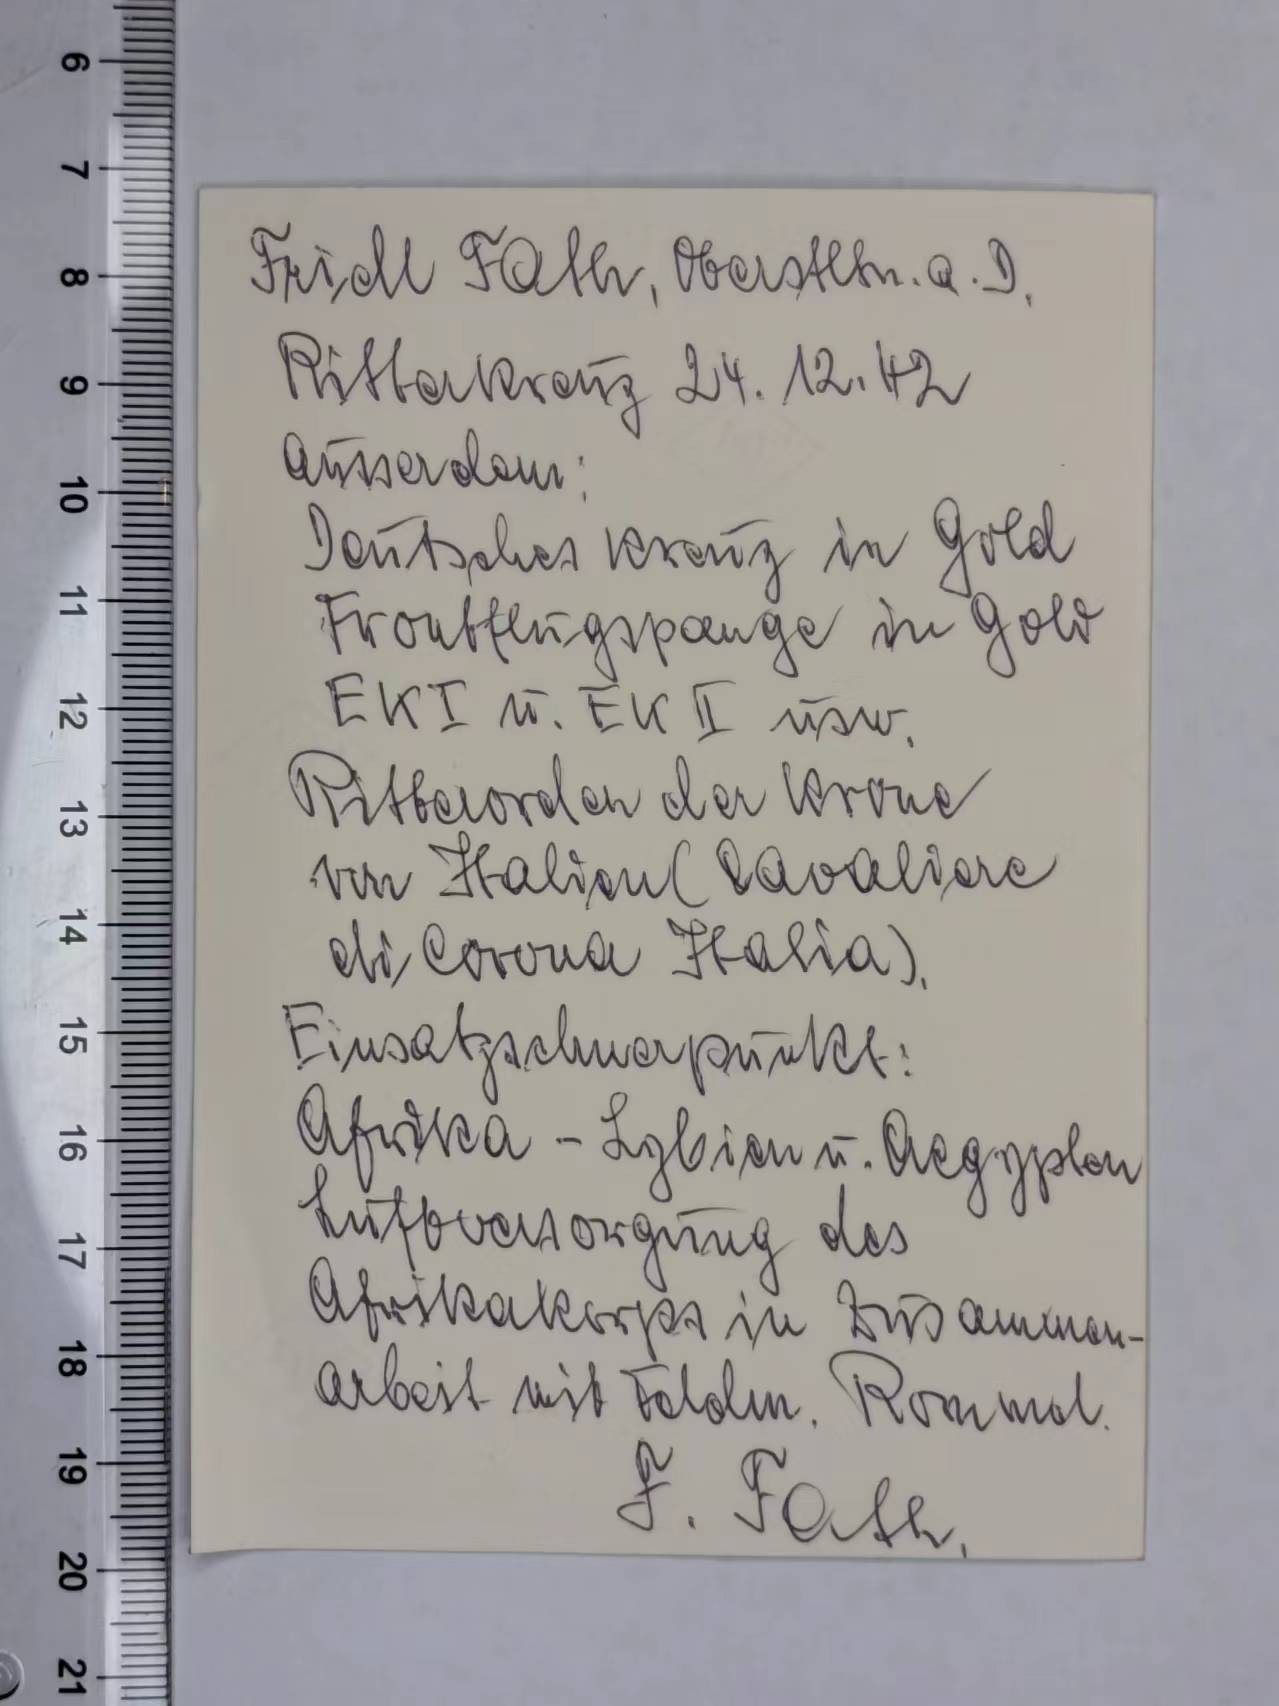 6
7
8
9
10
11
12
13
14
15
16
17
18
19
20
21
Fridl Fath, Oberstltn. a. D.
Ritterkreuz 24. 12. 42
ausserdem:
Deutsches Kreuz in Gold
Frontflugspange in Gold
EK I u. EK II usw.
Ritterorden der Krone
von Italien (Cavaliere
di Corona Italia).
Einsatzschwerpunkt:
Afrika - Lybien u. Aegypten
Luftversorgung des
Afrikakorps in Zusammen-
arbeit mit Feldm. Rommel.
F. Fath.